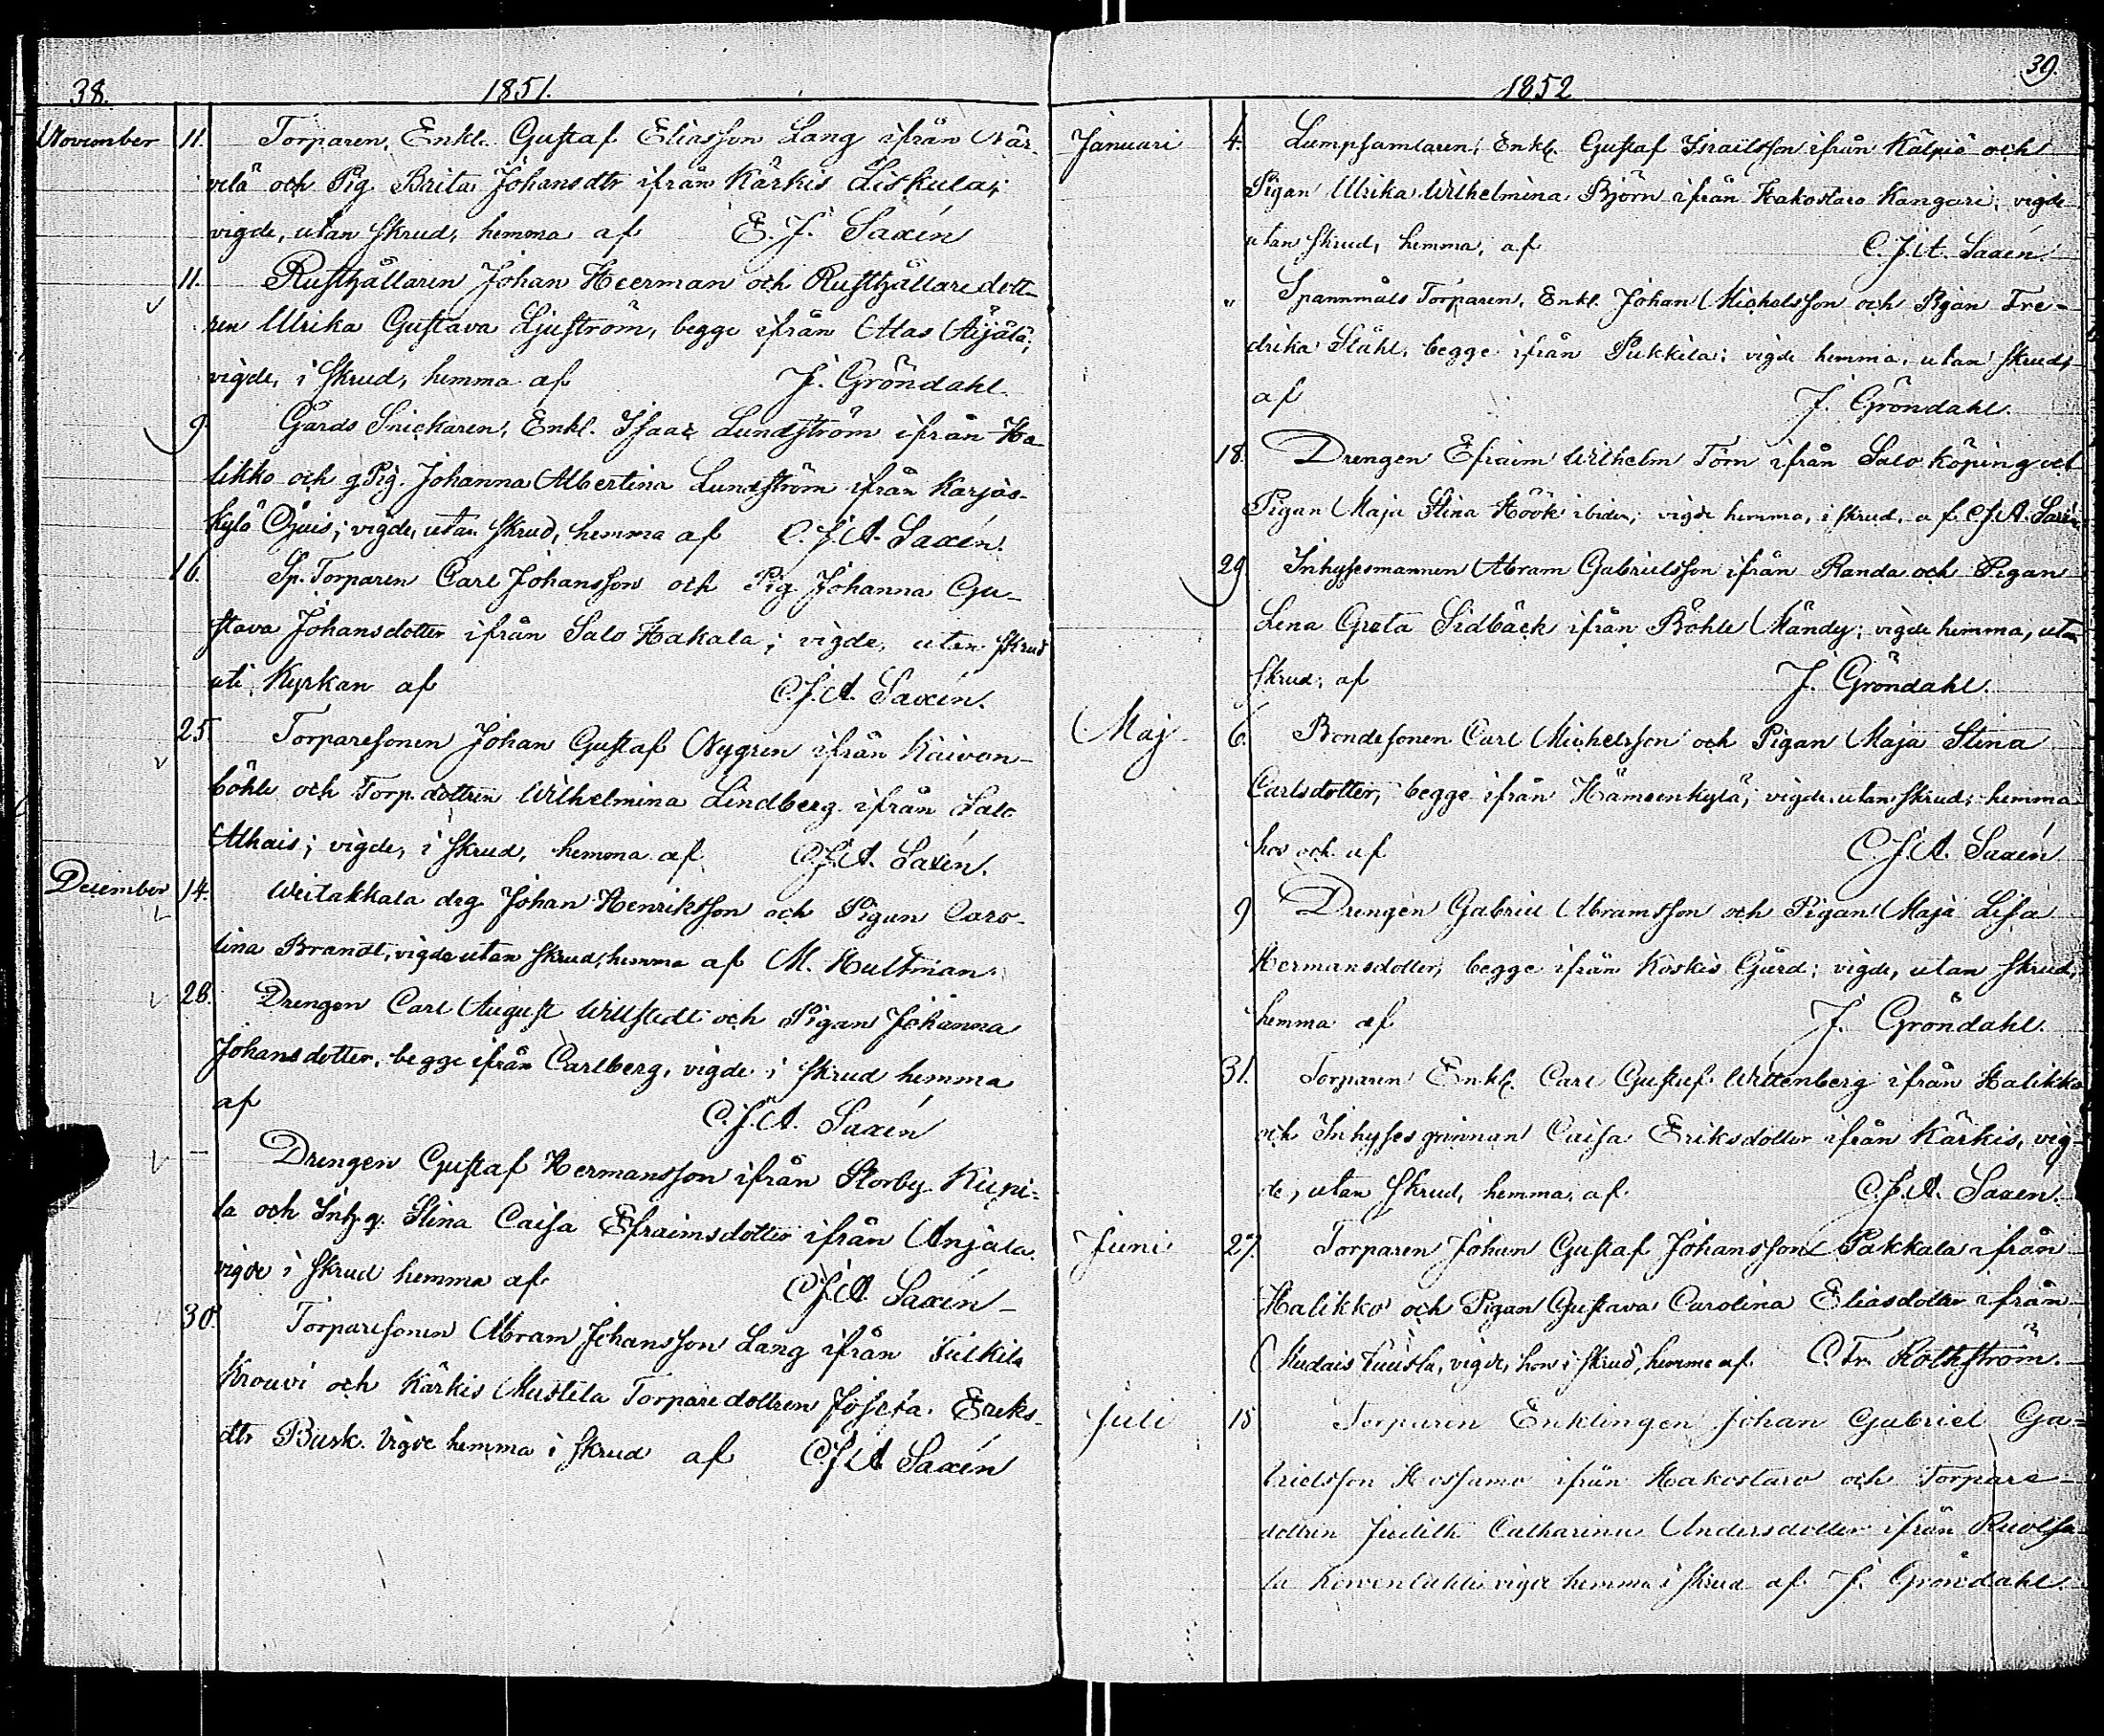 38.
1851.
November 11. Torparen, Enkl. Gustaf Eliasson Lang ifrån När-
velä och Pig. Brita Johansdtr ifrån Kärkis Liskula;
vigde, utan skrud, hemma af E. J. Saxén
11. Rusthållaren Johan Heerman och Rusthållaredott-
ren Ulrika Gustava Ljuström, begge ifrån Alas Äijälä;
vigde, i skrud, hemma af J. Gröndahl.
9. Gårds Snickaren, Enkl. Isaac Lundström ifrån Ha-
likko och g. Pig. Johanna Albertina Lundström ifrån Karjas-
kylä Öjuis; vigde, utan skrud, hemma af C. J. A. Saxén.
16. Sp. Torparen Carl Johansson och Pig. Johanna Gu-
stava Johansdotter ifrån Salo Hakala; vigde, utan skrud
uti Kyrkan af C. J. A. Saxén.
25. Torparesonen Johan Gustaf Nygren ifrån Kaivon-
böhle och Torp. dottren Wilhelmina Lindberg ifrån Salo
Alhais; vigde, i skrud, hemma af C. J. A. Saxén.
December 14. Weitakkala drg Johan Henriksson och Pigan Caro-
lina Brandt, vigde utan skrud, hemma af M. Hultman.
28. Drengen Carl August Willstedt och Pigan Johanna
Johansdotter, begge ifrån Carlberg, vigde i skrud hemma
af C. J. A. Saxén
– Drengen Gustaf Hermansson ifrån Storby Kupi-
la och Inh. q. Stina Caisa Efraimsdotter ifrån Anjala.
vigde i skrud hemma af C. J. A. Saxén –
30. Torparesonen Abram Johansson Lang ifrån
Krouvi och Kärkis Mustela Torparedottren Josefa Eriks-
dtr Busk. Vigde hemma i skrud af C. J. A. Saxén
39.
1852
Januari 4. Lumpsamlaren, Enkl. Gustaf Israilsson ifrån Kälpiö och
Pigan Ulrika Wilhelmina Björn ifrån Hakostaro Kangari; vigde
utan skrud, hemma, af C. J. A. Saxén.
" Spannmåls Torparen, Enkl. Johan Michelsson och Pigan Fre-
drika Ståhl, begge ifrån Pukkila; vigde hemma, utan skrud,
af J. Gröndahl.
18. Drengen Efraim Wilhelm Törn ifrån Salo köping och
Pigan Maja Stina Höök ibidem; vigde hemma, i skrud, af C. J. A. Saxén
29 Inhysesmannen Abram Gabrielsson ifrån Randa och Pigan
Lena Greta Sidbäck ifrån Böhle Mändy; vigde hemma, utan
skrud, af J. Gröndahl.
Maj 6. Bondesonen Carl Michelsson och Pigan Maja Stina
Carlsdotter, begge ifrån Hämeenkylä; vigde utan skrud, hemma
hos och af C. J. A. Saxén
9 Drengen Gabriel Abramsson och Pigan Maja Lisa
Hermansdotter, begge ifrån Koskis Gård; vigde, utan skrud,
hemma af J. Gröndahl.
31. Torparen Enkl. Carl Gustaf Wittenberg ifrån Halikko
och Inhysesqvinnan Caisa Eriksdotter ifrån Kärkis, vig-
de, utan skrud, hemma, af C. J. A. Saxén.
Juni 27. Torparen Johan Gustaf Johansson Pakkala ifrån
Halikko och Pigan Gustava Carolina Eliasdotter ifrån
vigde, hon i skrud, hemma af C. Fr. Rothström.
Juli 15 Torparen Enklingen Johan Gabriel Ga-
brielsson Hossamo ifrån Hakostaro och Torpare-
dottren Judith Catharina Andersdotter ifrån
la vigde hemma i skrud af J. Gröndahl.